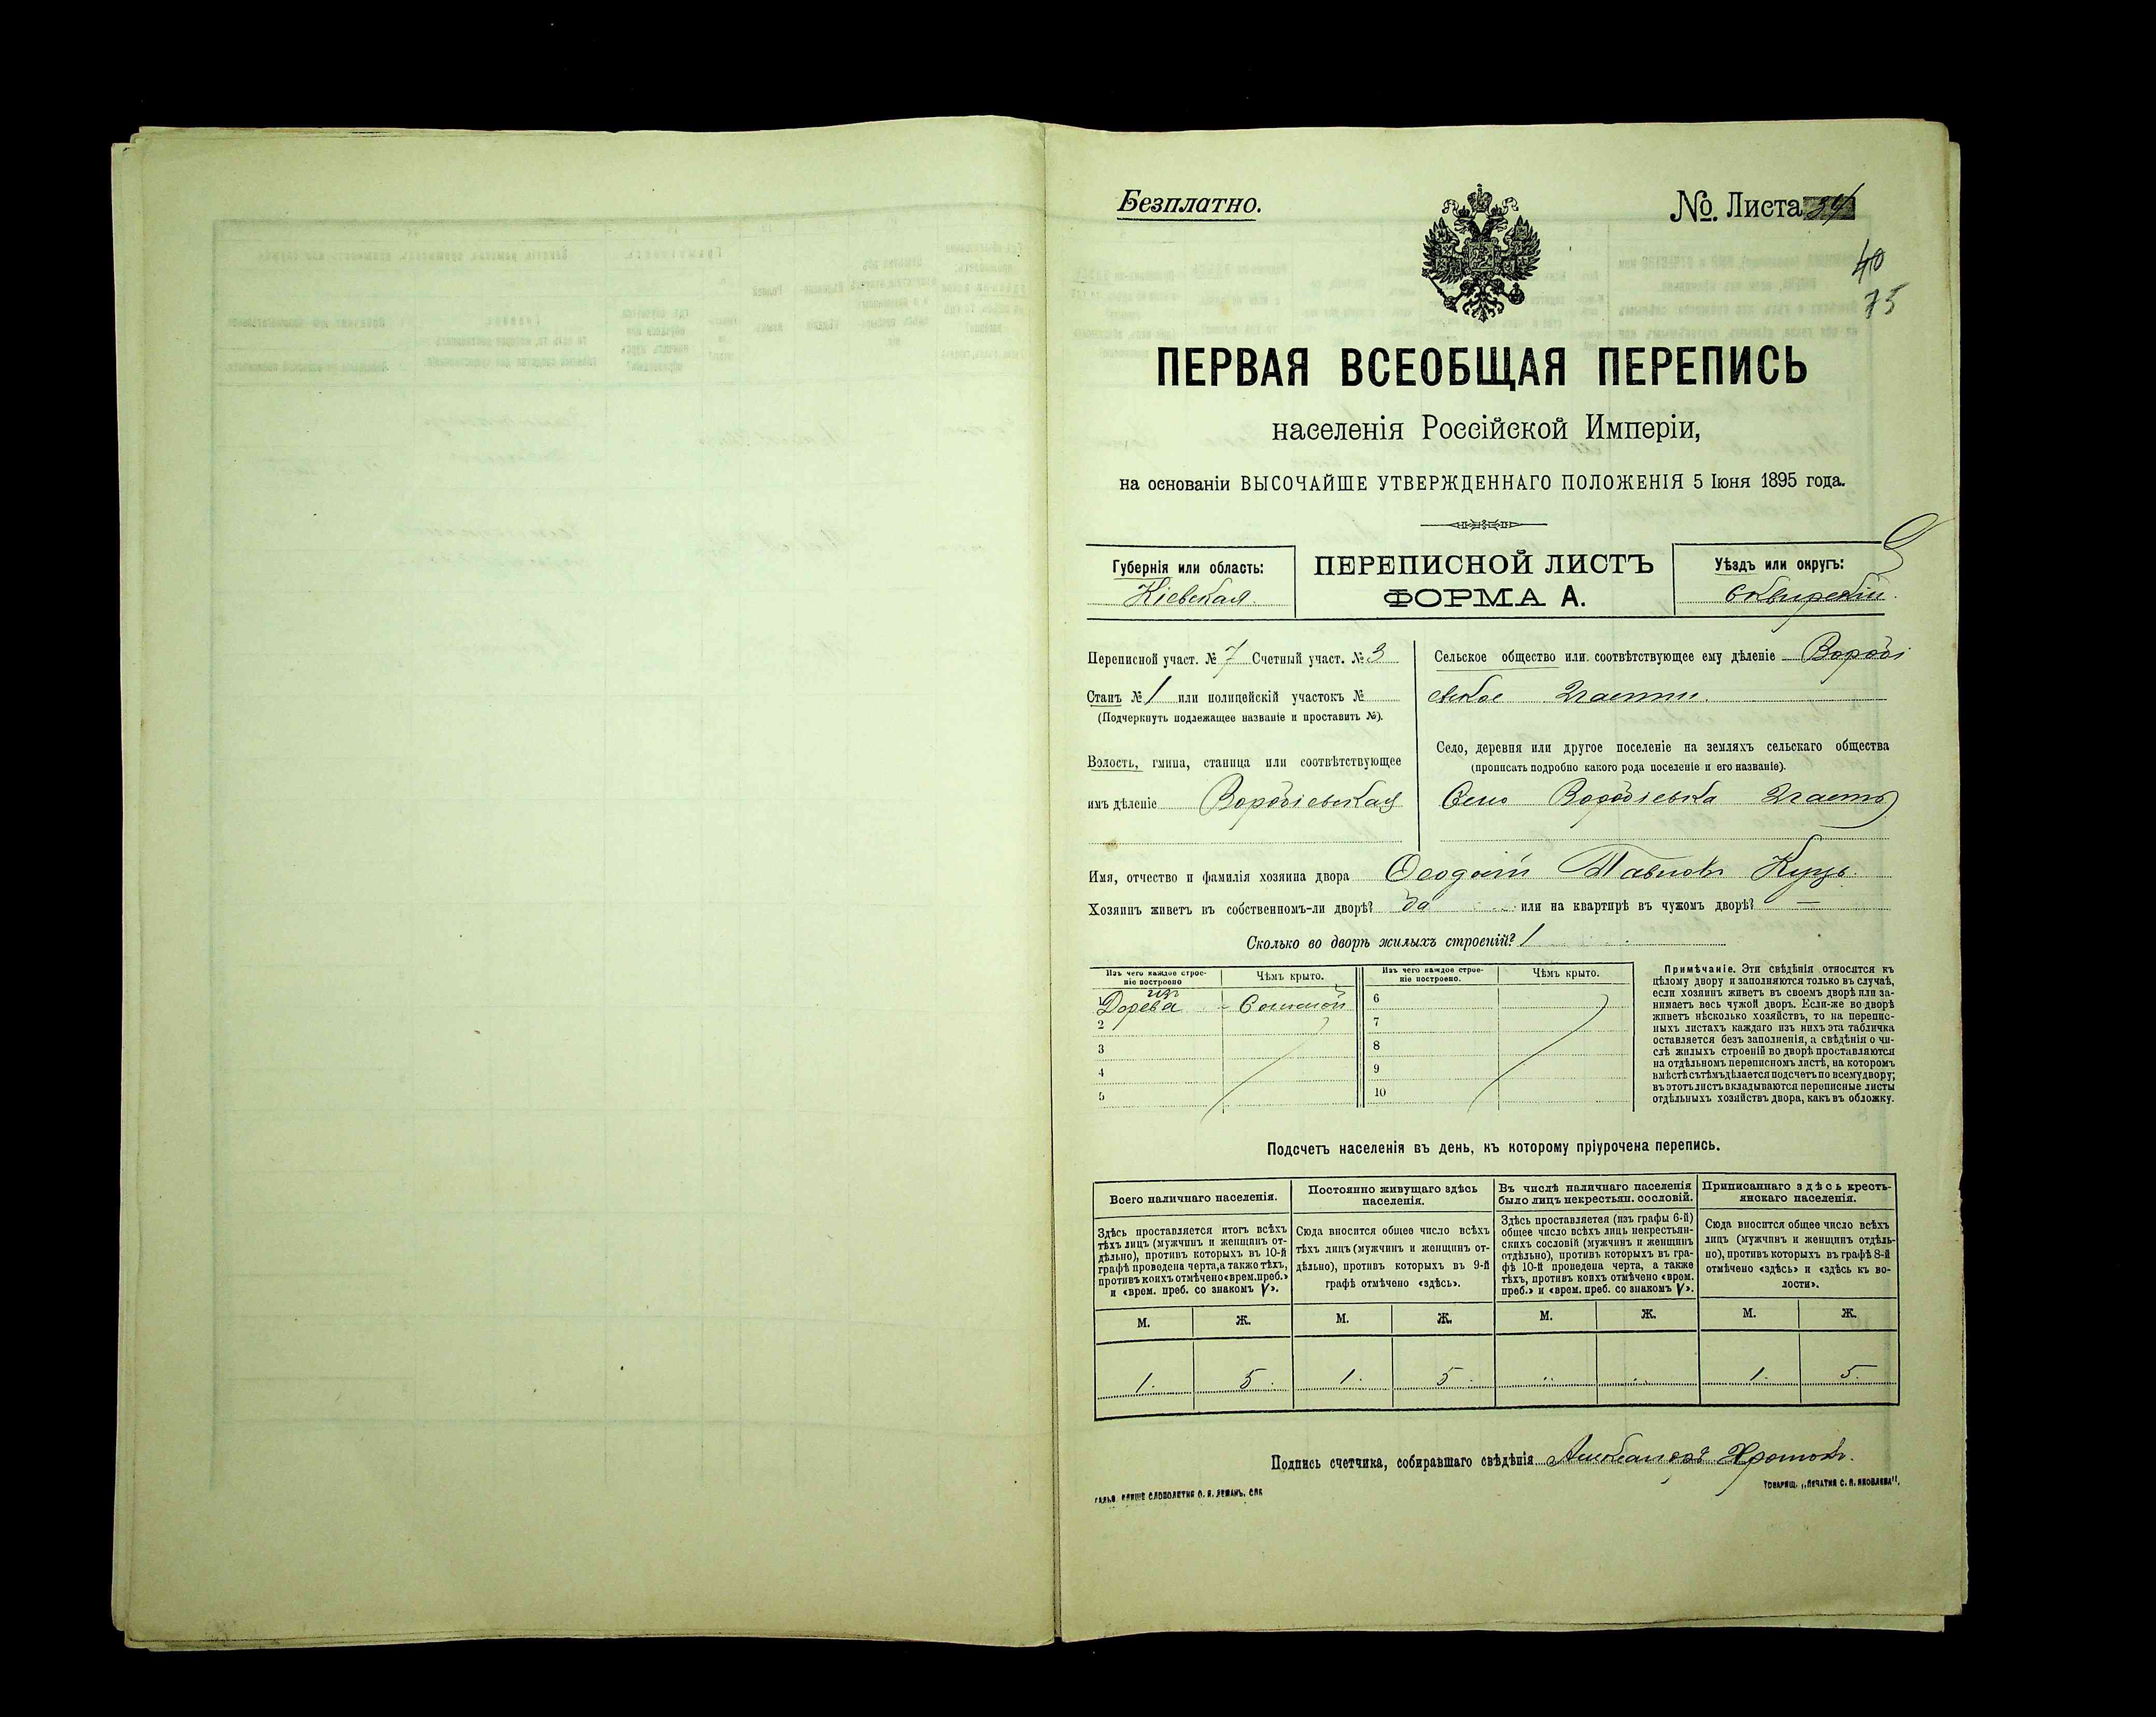 Безплатно.
№ Листа 39
40
75
ПЕРВАЯ ВСЕОБЩАЯ ПЕРЕПИСЬ
населенія Россійской Имперіи,
на основаніи ВЫСОЧАЙШЕ УТВЕРЖДЕННАГО ПОЛОЖЕНІЯ 5 Іюня 1895 года.
Губернія или область:
Кіевская
ПЕРЕПИСНОЙ ЛИСТЪ
ФОРМА А.
Уѣздъ или округъ:
Сквирскій
Переписной участ. № 7 Счетный участ. № 3
Станъ № 1 или полицейскій участокъ №
(Подчеркнуть подлежащее названіе и проставить №).
Волость, гмина, станица или соотвѣтствующее
имъ дѣленіе Воробіевская
Сельское общество или соотвѣтствующее ему дѣленіе Воробі
евкое 2 части.
Село, деревня или другое поселеніе на земляхъ сельскаго общества
(прописать подробно какого рода поселеніе и его названіе).
Село Воробіевка 2 часть
Имя, отчество и фамилія хозяина двора Ѳеодосій Павловъ Куць.
Хозяинъ живетъ въ собственномъ-ли дворѣ? да или на квартирѣ въ чужомъ дворѣ? —
Сколько во дворѣ жилыхъ строеній? 1
Изъ чего каждое строе-
ніе построено
Чѣмъ крыто.
Изъ чего каждое строе-
ніе построено.
Чѣмъ крыто.
1 изъ Дерева Соломой
2
3
4
5
6
7
8
9
10
Примѣчаніе. Эти свѣдѣнія относятся къ
цѣлому двору и заполняются только въ случаѣ,
если хозяинъ живетъ въ своемъ дворѣ или за-
нимаетъ весь чужой дворъ. Если-же во дворѣ
живетъ нѣсколько хозяйствъ, то на перепис-
ныхъ листахъ каждаго изъ нихъ эта табличка
оставляется безъ заполненія, а свѣдѣнія о чи-
слѣ жилыхъ строеній во дворѣ проставляются
на отдѣльномъ переписномъ листѣ, на которомъ
вмѣстѣ съ тѣмъ дѣлается подсчетъ по всему двору;
въ этотъ листъ вкладываются переписные листы
отдѣльныхъ хозяйствъ двора, какъ въ обложку.
Подсчетъ населенія въ день, къ которому пріурочена перепись.
Всего наличнаго населенія.
Здѣсь проставляется итогъ всѣхъ
тѣхъ лицъ (мужчинъ и женщинъ от-
дѣльно), противъ которыхъ въ 10-й
графѣ проведена черта, а также тѣхъ,
противъ коихъ отмѣчено «врем. преб.»
и «врем. преб. со знакомъ V».
Постоянно живущаго здѣсь
населенія.
Сюда вносится общее число всѣхъ
тѣхъ лицъ (мужчинъ и женщинъ от-
дѣльно), противъ которыхъ въ 9-й
графѣ отмѣчено «здѣсь».
Въ числѣ наличнаго населенія
было лицъ некрестьян. сословій.
Здѣсь проставляется (изъ графы 6-й)
общее число всѣхъ лицъ некрестьян-
скихъ сословій (мужчинъ и женщинъ
отдѣльно), противъ которыхъ въ гра-
фѣ 10-й проведена черта, а также
тѣхъ, противъ коихъ отмѣчено «врем.
преб.» и «врем. преб. со знакомъ V».
Приписаннаго здѣсь кресть-
янскаго населенія.
Сюда вносится общее число всѣхъ
лицъ (мужчинъ и женщинъ отдѣль-
но), противъ которыхъ въ графѣ 8-й
отмѣчено «здѣсь» и «здѣсь къ во-
лости».
М. Ж. М. Ж. М. Ж. М. Ж.
1. 5. 1. 5. 1. 5.
Подпись счетчика, собиравшаго свѣдѣнія Александръ
ТОВАРИЩ. „ПЕЧАТНЯ С. П. ЯКОВЛЕВА".